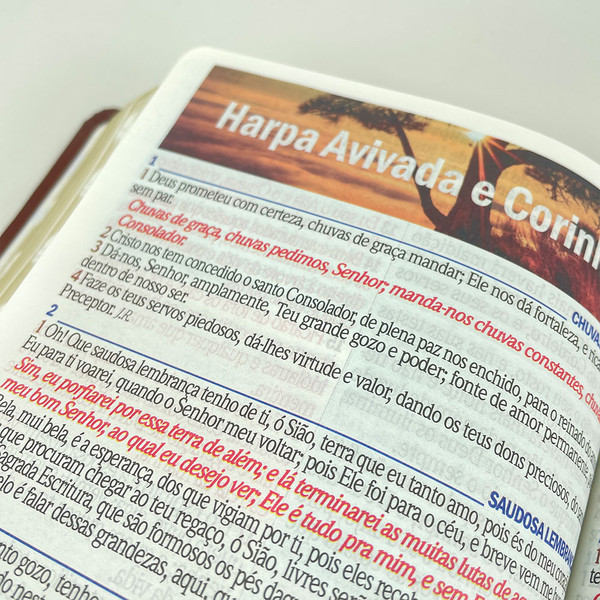 Harpa Avivada e Corin
1
CHUVA
1 Deus prometeu com certeza, chuvas de graça mandar; Ele nos dá fortaleza, e rica
sem par.
Chuvas de graça, chuvas pedimos, Senhor; manda-nos chuvas constantes, chuv
Consolador.
2 Cristo nos tem concedido o santo Consolador, de plena paz nos enchido, para o reinado do
3 Dá-nos, Senhor, amplamente, Teu grande gozo e poder; fonte de amor permanente
dentro de nosso ser.
4 Faze os teus servos piedosos, dá-lhes virtude e valor, dando os teus dons preciosos, do
Preceptor. J.R.
2
SAUDOSA LEMBRAN
1 Oh! Que saudosa lembrança tenho de ti, ó Sião, terra que eu tanto amo, pois és do meu cora
Eu para ti voarei, quando o Senhor meu voltar; pois Ele foi para o céu, e breve vem me
Sim, eu porfiarei por essa terra de além; e lá terminarei as muitas lutas de aq
meu bom Senhor, ao qual eu desejo ver; Ele é tudo pra mim, e sem
ela, mui bela, é a esperança, dos que vigiam por ti, pois eles receb
que procuram chegar ao teu regaço, ó Sião, livres ser
agrada Escritura, que são formosos os pés daq
elo é falar dessas grandezas, aqui, qu
nto gozo, tenho